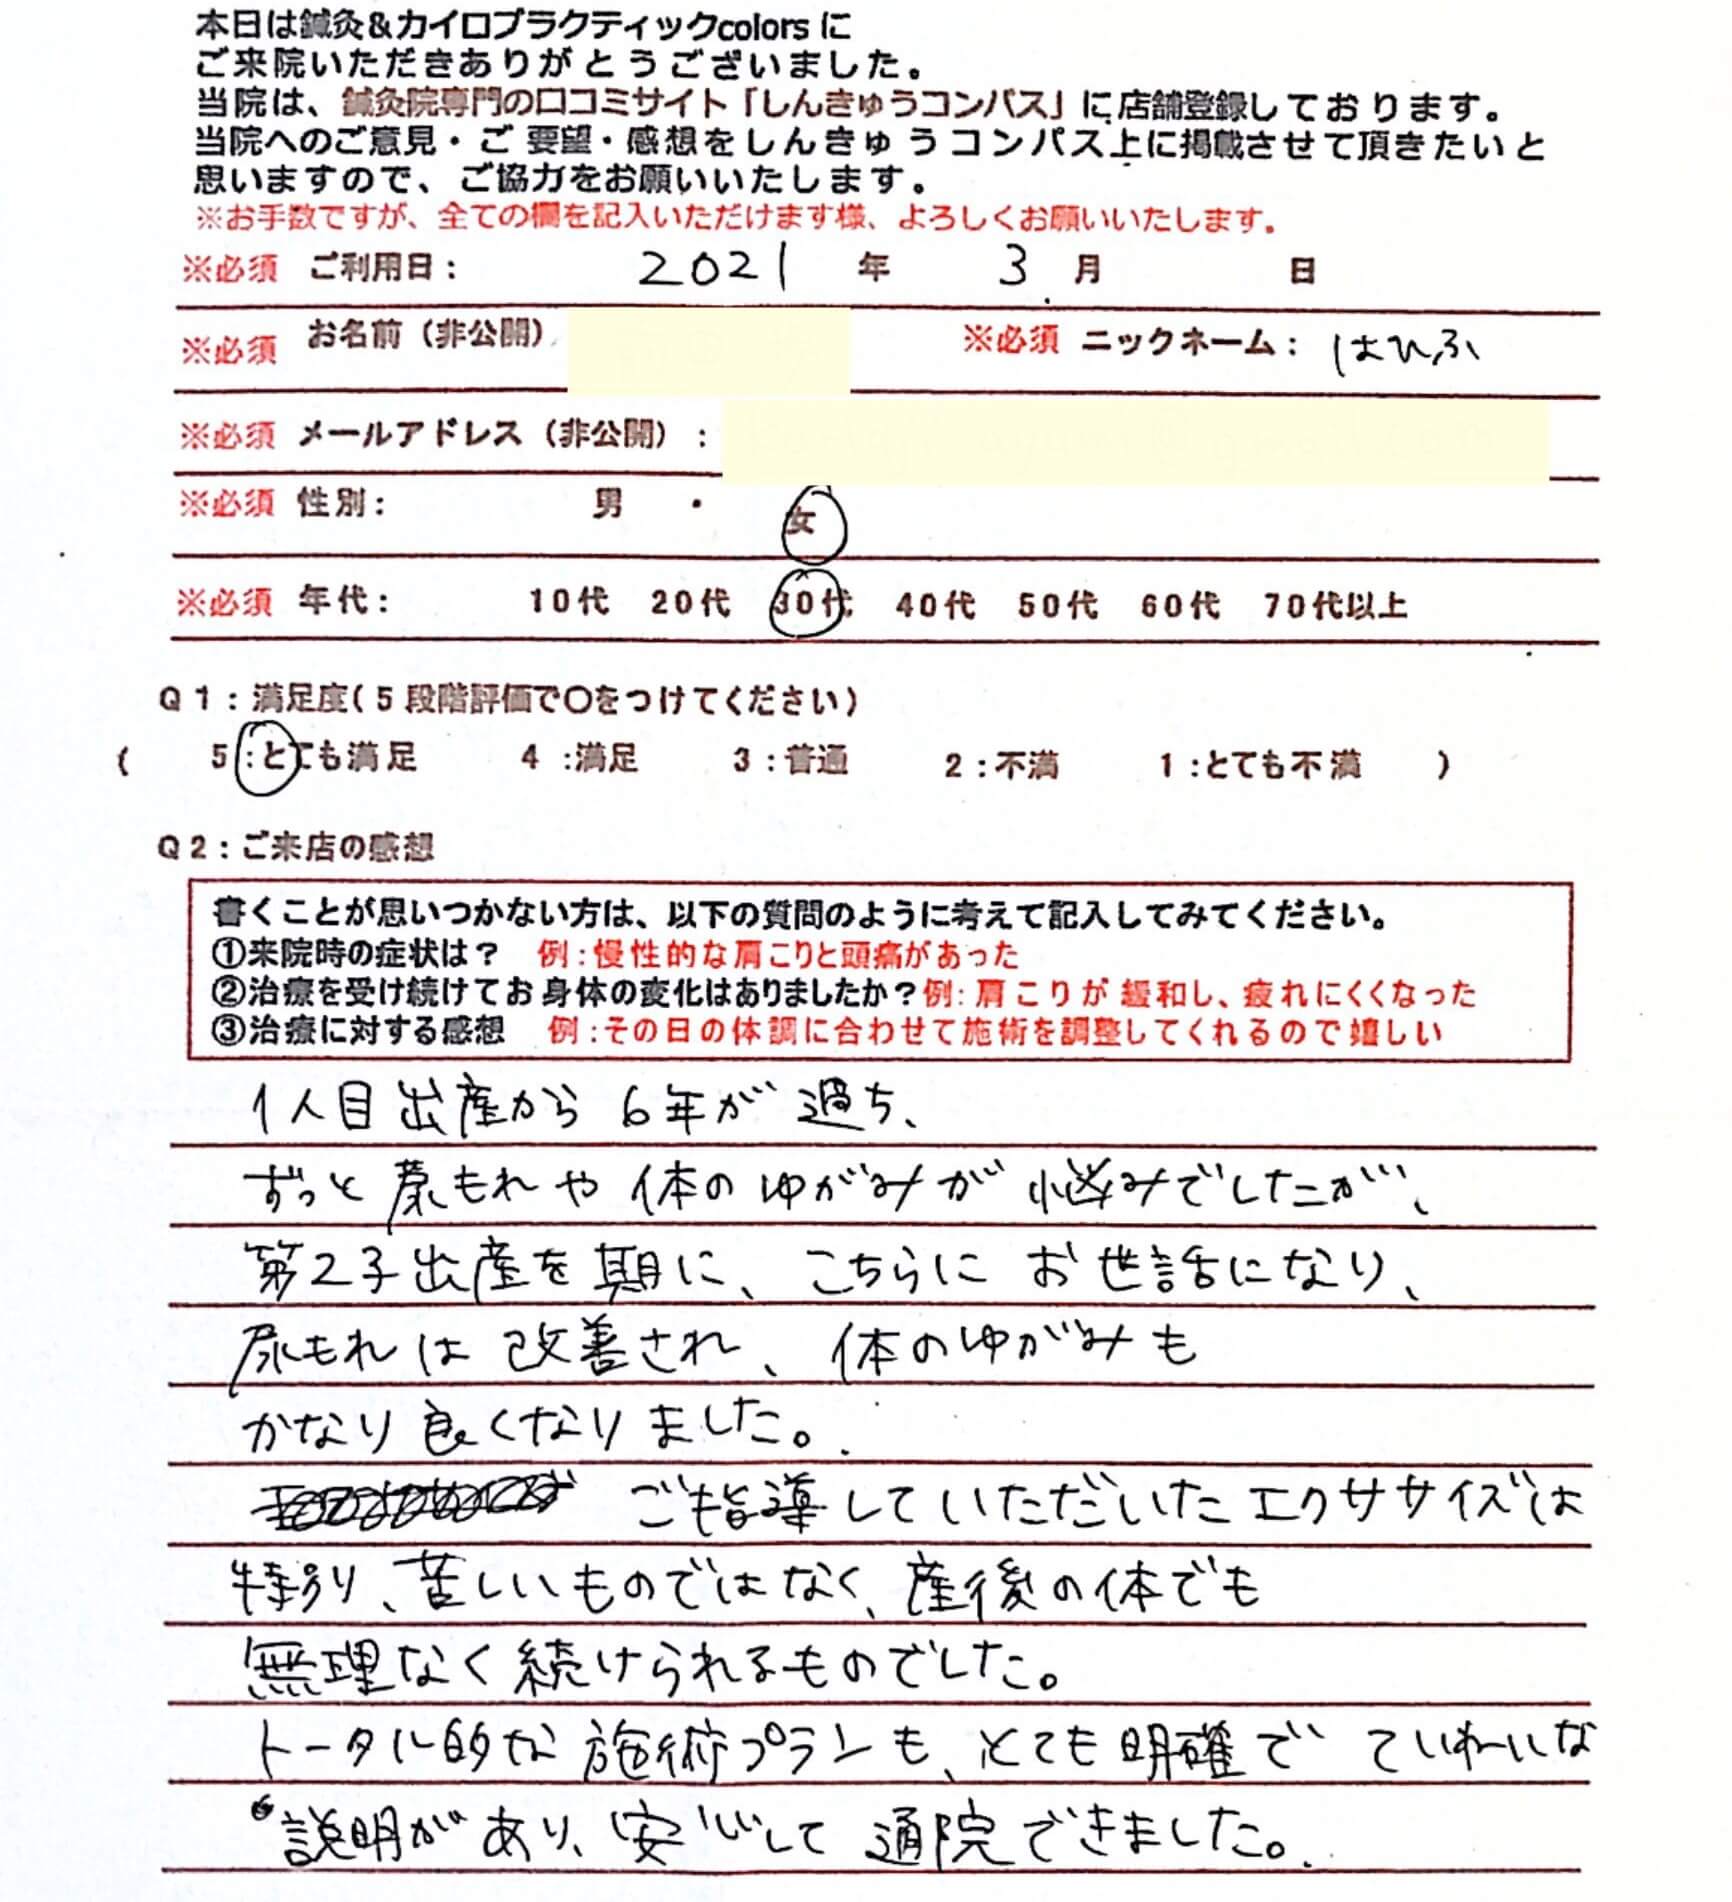 本日は鍼灸&カイロプラクティックcolorsに
ご来院いただきありがとうございました。
当院は、鍼灸院専門の口コミサイト「しんきゅうコンパス」に店舗登録しております。
当院へのご意見・ご要望・感想をしんきゅうコンパス上に掲載させて頂きたいと
思いますので、ご協力をお願いいたします。
※お手数ですが、全ての欄を記入いただけます様、よろしくお願いいたします。
※必須 ご利用日: 2021 年 3 月 日
※必須 お名前(非公開) ※必須 ニックネーム: はひふ
※必須 メールアドレス(非公開):
※必須 性別: 男 ・ 女
※必須 年代: 10代 20代 30代 40代 50代 60代 70代以上
Q1:満足度(5段階評価で〇をつけてください)
( 5:とても満足 4:満足 3:普通 2:不満 1:とても不満 )
Q2:ご来店の感想
書くことが思いつかない方は、以下の質問のように考えて記入してみてください。
①来院時の症状は? 例:慢性的な肩こりと頭痛があった
②治療を受け続けてお身体の変化はありましたか?例:肩こりが緩和し、疲れにくくなった
③治療に対する感想 例:その日の体調に合わせて施術を調整してくれるので嬉しい
1人目出産から6年が過ち、
ずっと尿もれや体のゆがみが悩みでしたが、
第2子出産を期に、こちらにお世話になり、
尿もれは改善され、体のゆがみも
かなり良くなりました。
ご指導していただいたエクササイズは
特別、苦しいものではなく、産後の体でも
無理なく続けられるものでした。
トータル的な施術プランも、とても明確でていねいな
説明があり、安心して通院できました。